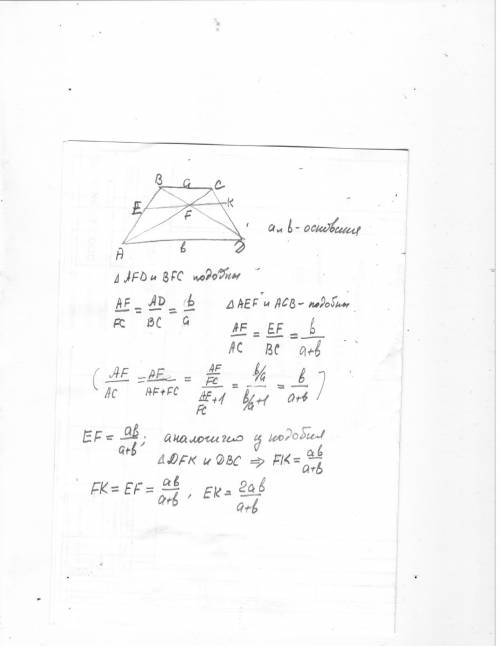 B a C
E F K
a и b - основания
A b D
Δ AFD и BFC подобны
AF/FC = AD/BC = b/a    Δ AEF и ACB - подобны
AF/AC = EF/BC = b/(a+b)
(AF/AC = AF/(AF+FC) = (AF/FC)/(AF/FC+1) = (b/a)/(b/a+1) = b/(a+b))
EF = ab/(a+b); аналогично из подобия
Δ DFK и DBC ⇒ FK = ab/(a+b)
FK = EF = ab/(a+b), EK = 2ab/(a+b)